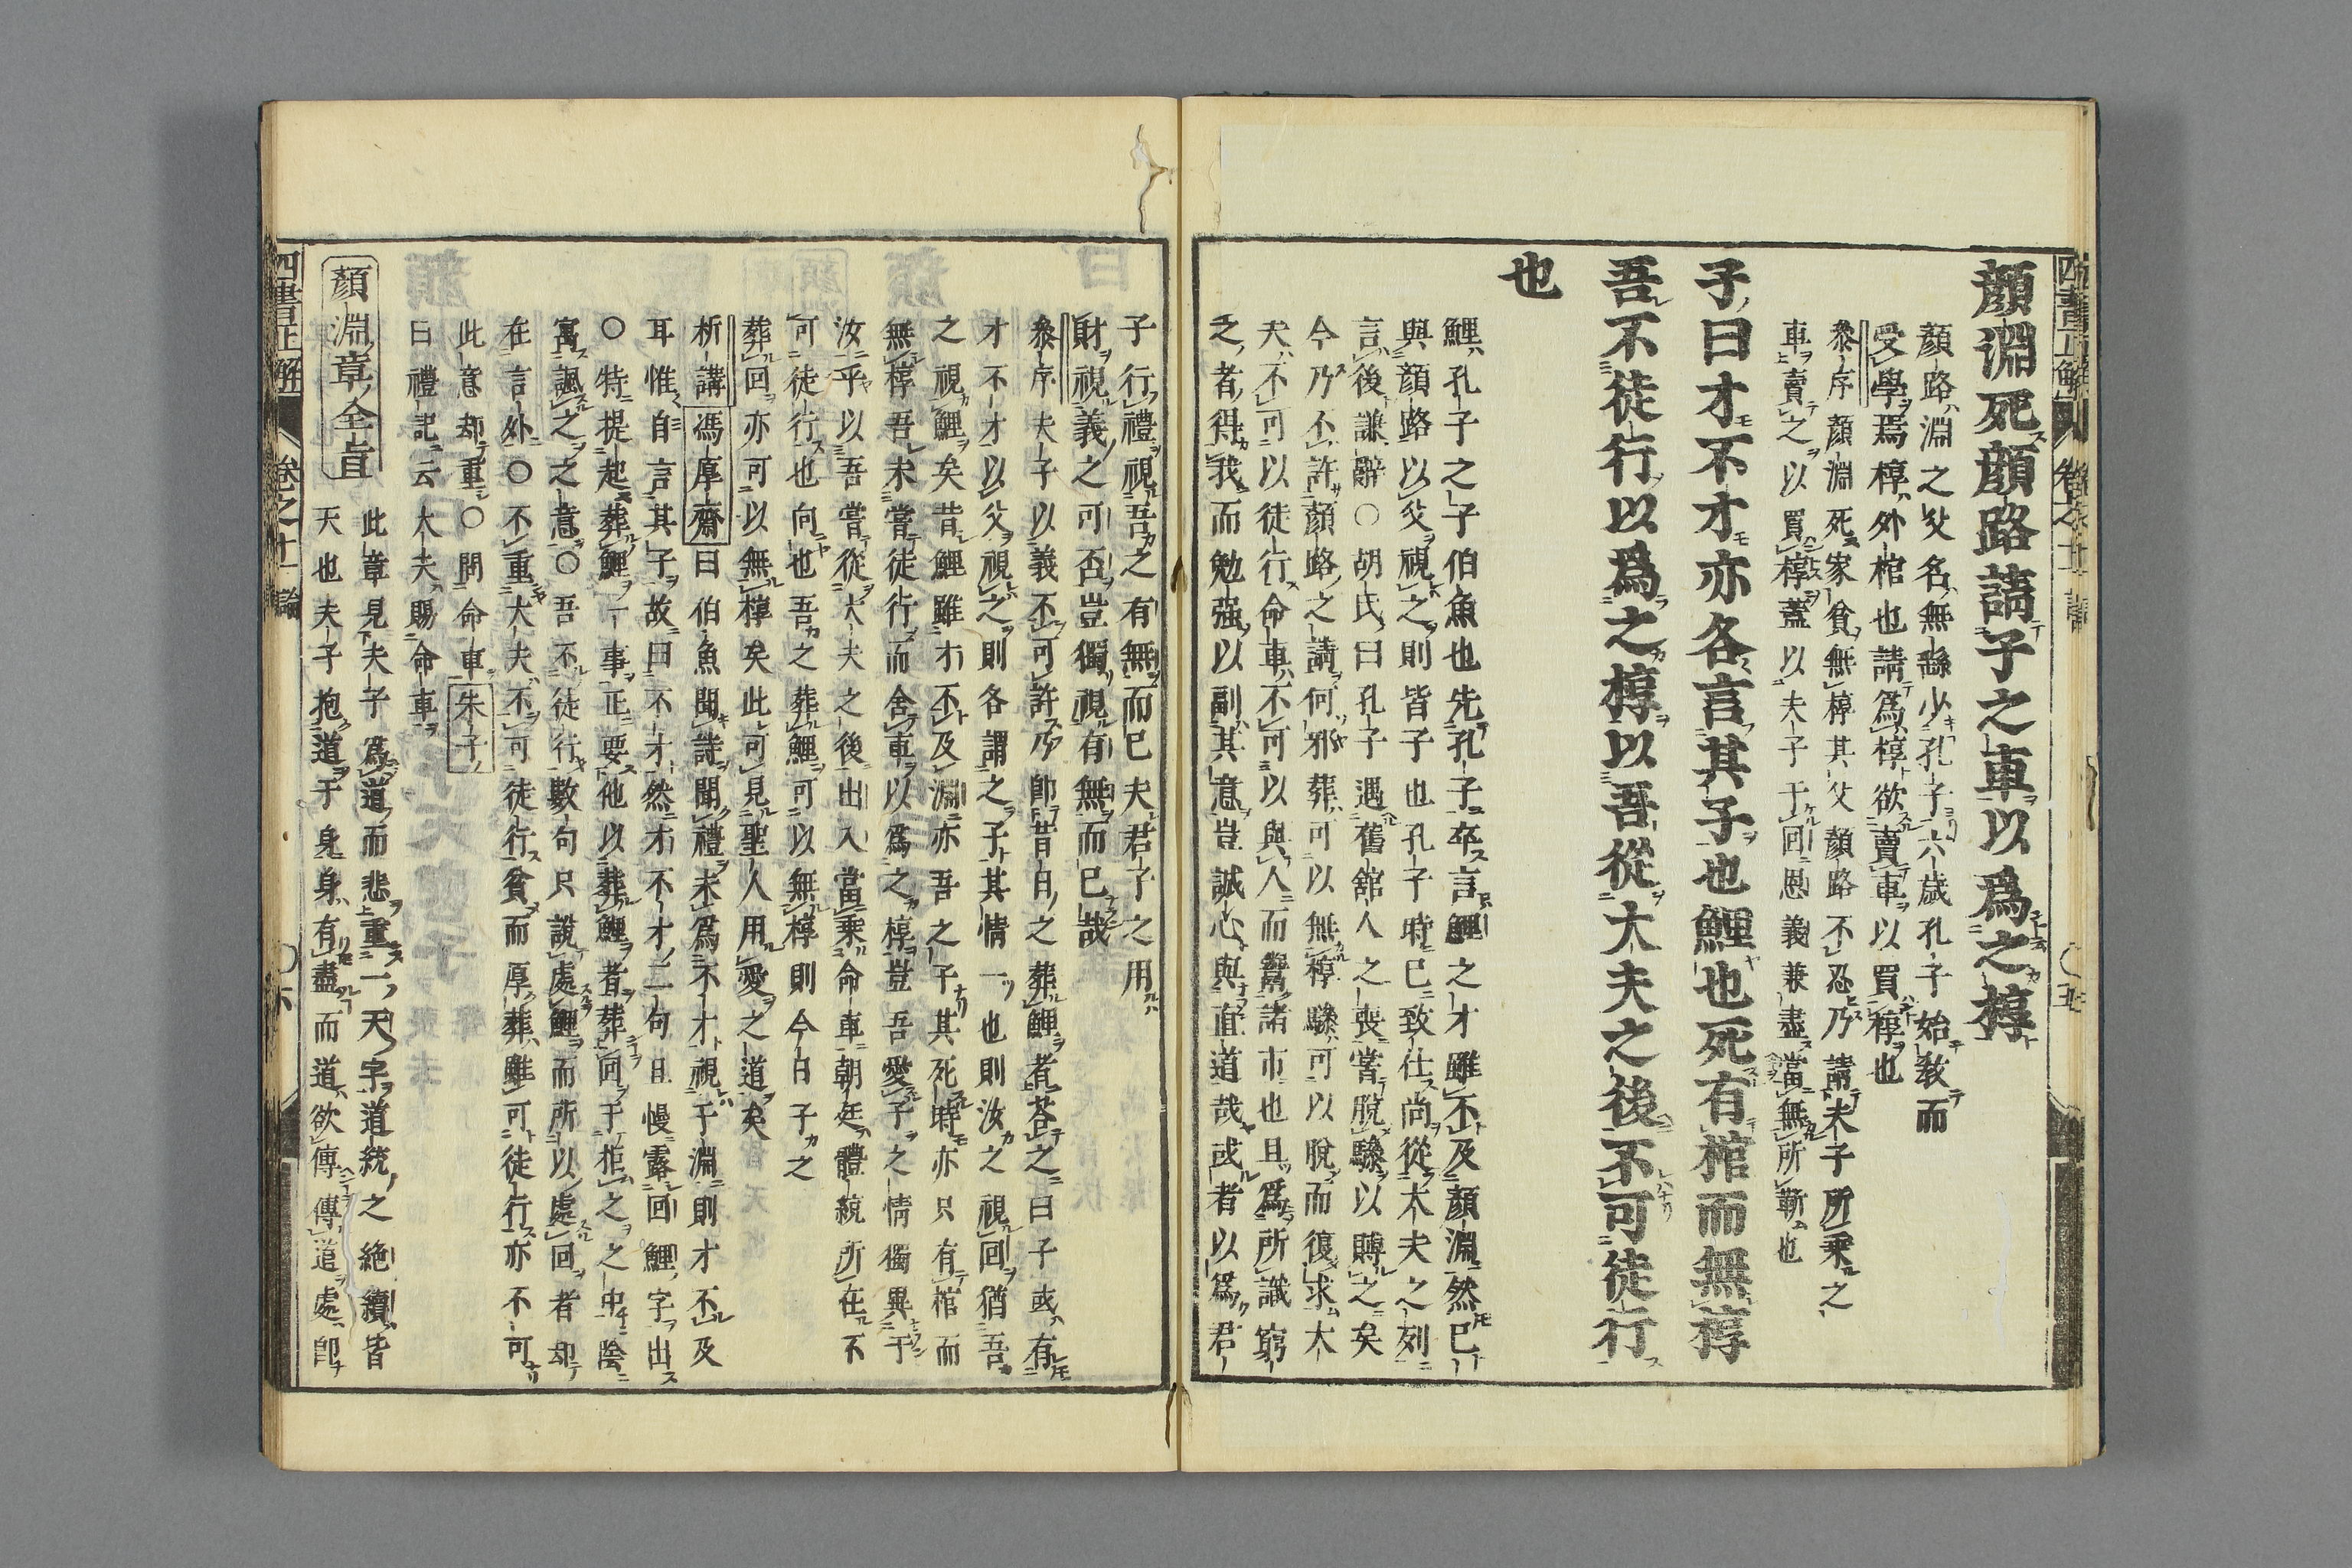 顏淵死顏路請子之車以爲之椁
顏路淵之父名無繇少孔子六歲孔子始敎而
受學焉椁外棺也請爲椁欲賣車以買椁也
叅序顏淵死家貧無椁其父顏路不忍乃請夫子所乘之
車賣之以買椁蓋以夫子于回恩義兼盡當無所靳也
子曰才不才亦各言其子也鯉也死有棺而無椁
吾不徒行以爲之椁以吾從大夫之後不可徒行
也
鯉孔子之子伯魚也先孔子卒言鯉之才雖不及顏淵然已
與顏路以父視之則皆子也孔子時已致仕尚從大夫之列
言後謙辭○胡氏曰孔子遇舊舘人之喪嘗脫驂以賻之矣
今乃不許顏路之請何邪葬可以無椁驂可以脫而復求大
夫不可以徒行命車不可以與人而鬻諸市也且爲所識窮
乏者得我而勉强以副其意豈誠心與直道哉或者以爲君
子行禮視吾之有無而已夫君子之用
財視義之可否豈獨視有無而已哉
叅序夫子以義不可許乃卽昔日之葬鯉者荅之曰子或有
才不才以父視之則各謂之子其情一也則汝之視回猶吾
之視鯉矣昔鯉雖才不及淵亦吾之子其死時亦只有棺而
無椁吾未嘗徒行而舍車以爲之椁豈吾愛子之情獨異于
汝乎以吾嘗從大夫之後出入當乘命車朝廷體統所在不
可徒行也向也吾之葬鯉可以無椁則今日子之
葬回亦可以無椁矣此可見聖人用愛之道矣
析講馮厚齋曰伯魚聞詩聞禮未爲不才視于淵則才不及
耳惟自言其子故曰不才然才不才二句且慢露回鯉字出
○特提起葬鯉一事正要他以葬鯉者葬回于拒之之中陰
寓諷之之意○吾不徒行數句只說處鯉而所以處回者却
在言外○不重大夫不可徒行貧而厚葬雖可徒行亦不可
此意却重○問命車朱子
曰禮記云大夫賜命車
顏淵章全旨
此章見夫子爲道而悲重二天字道統之絕續皆
天也夫子抱道于身身有盡而道欲傳傳道處卽
四書正解
卷之十一論